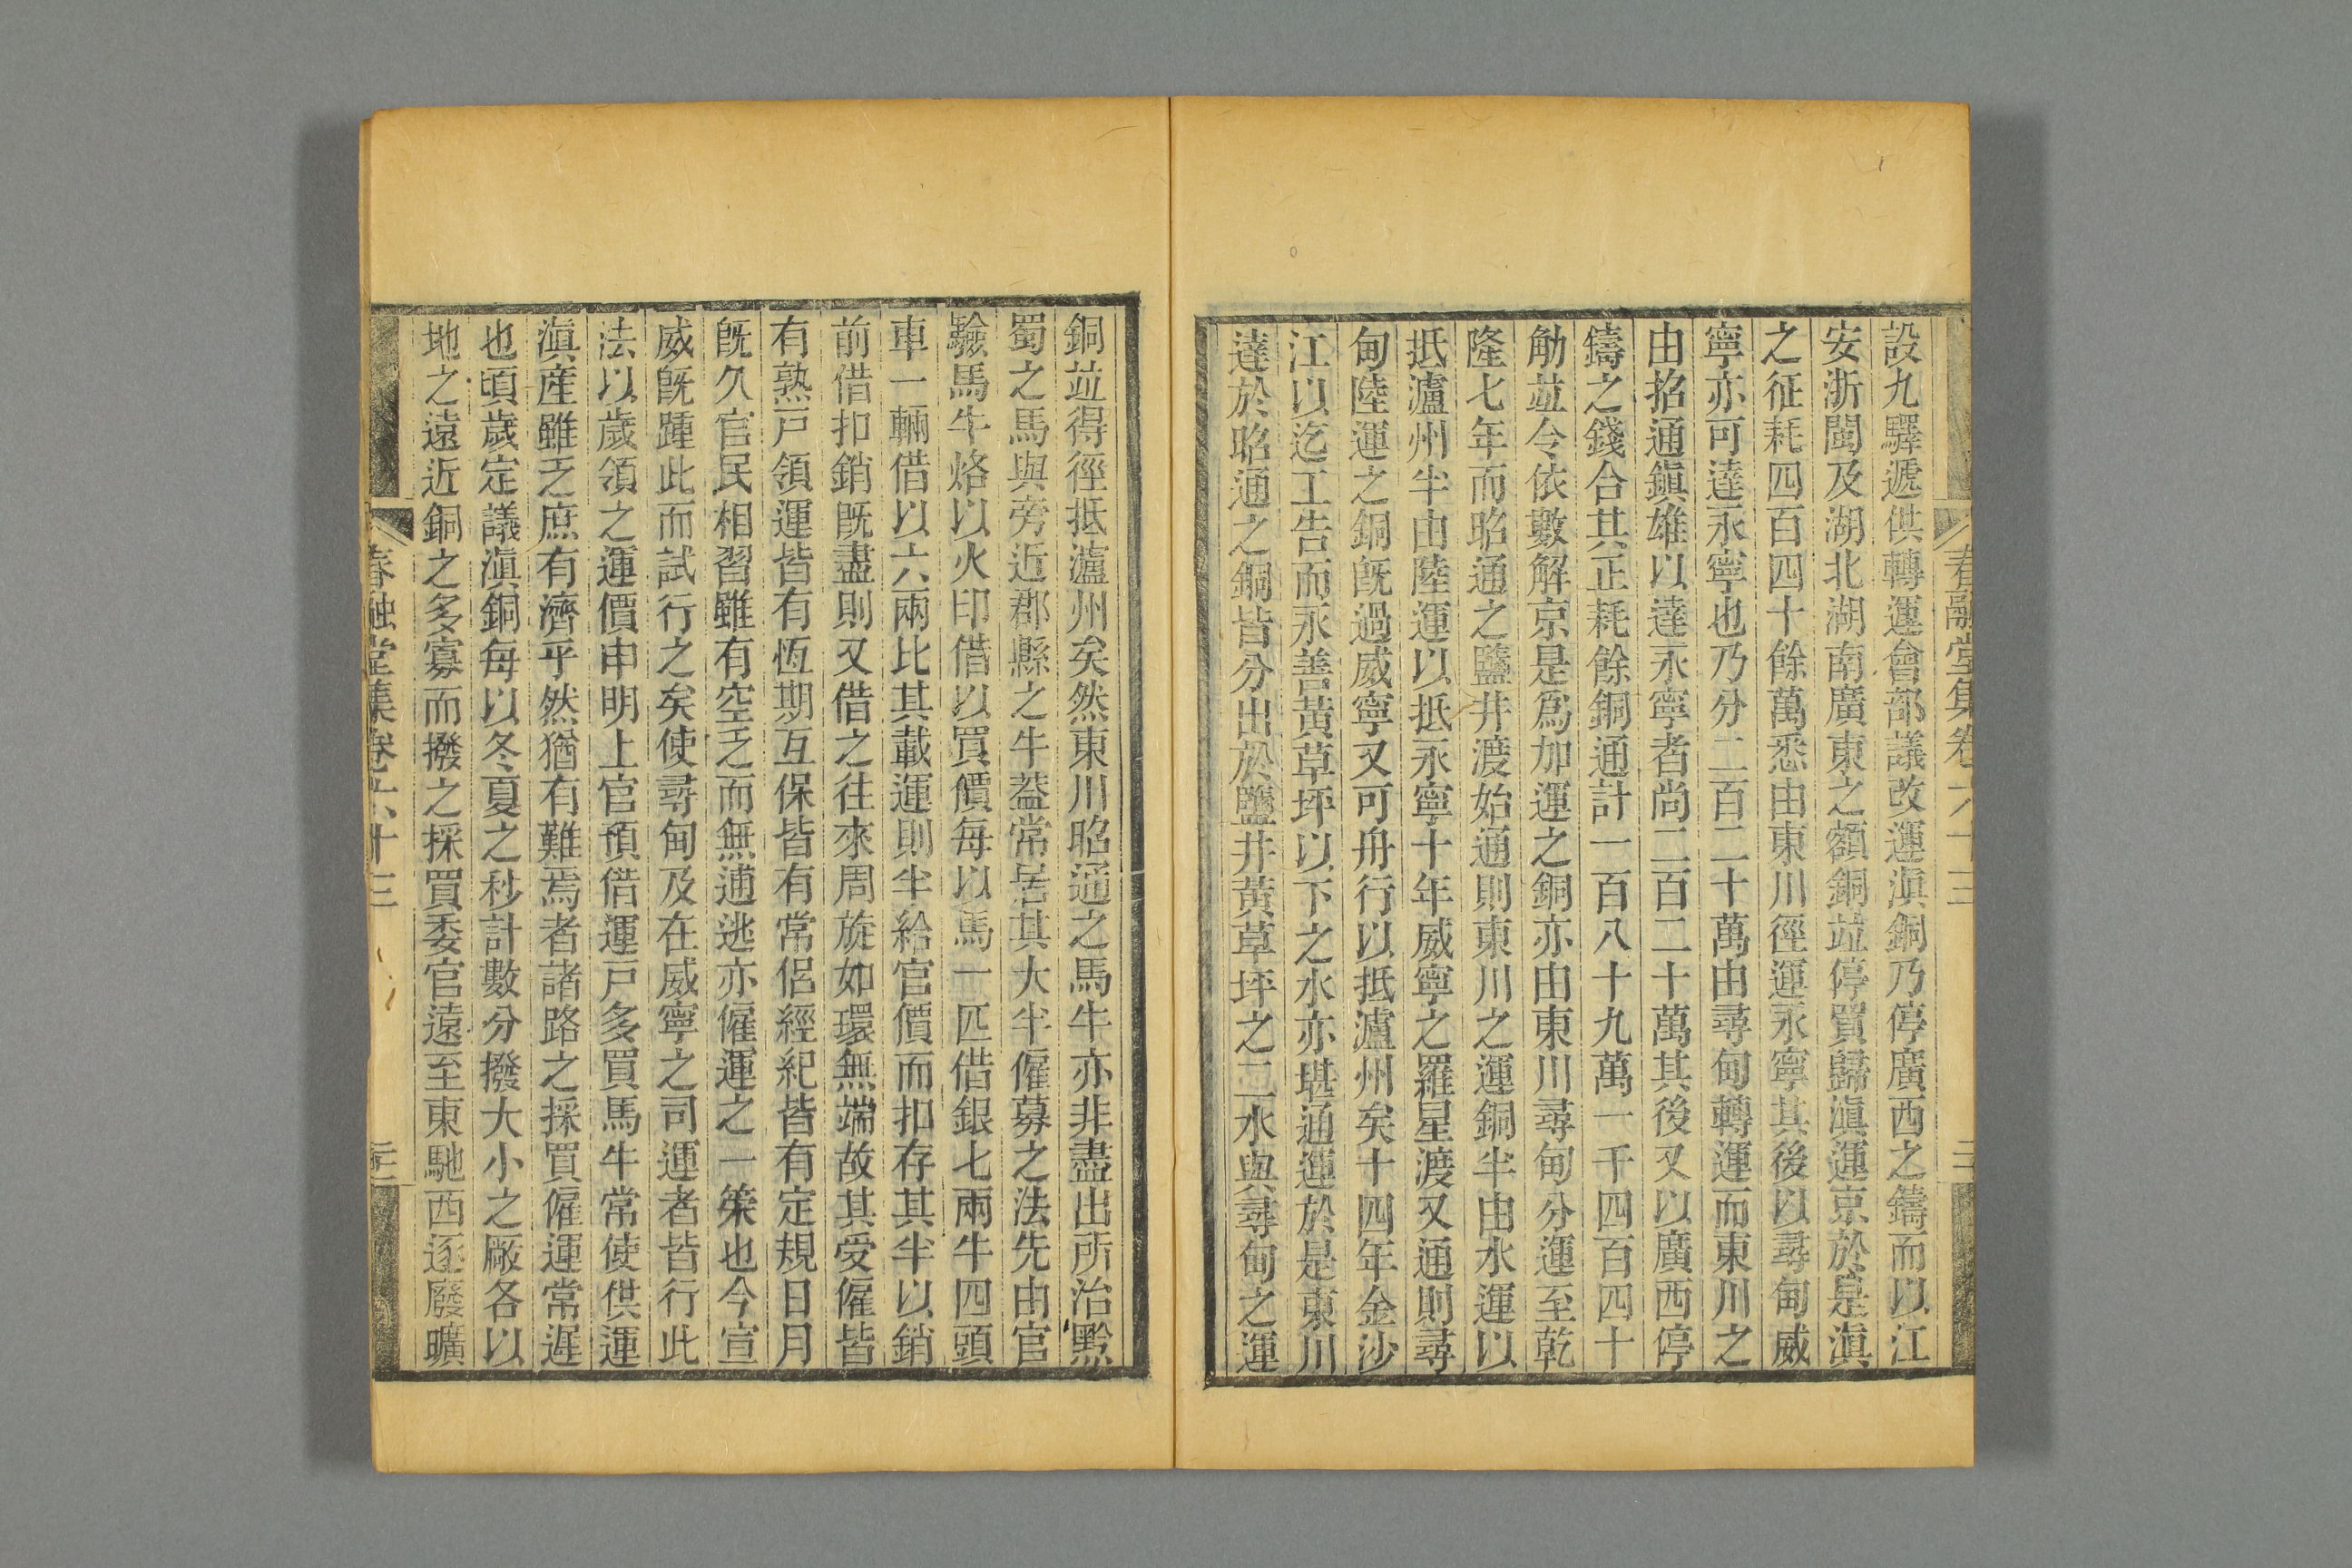 春融堂集卷六十三
設九驛遞供轉運會部議改運滇銅乃停廣西之鑄而以江
安浙閩及湖北湖南廣東之額銅竝停買歸滇運京於是滇
之征耗四百四十餘萬悉由東川徑運永寧其後以尋甸威
寧亦可達永寧也乃分二百二十萬由尋甸轉運而東川之
由招通鎭雄以達永寧者尚二百二十萬其後又以廣西停
鑄之錢合其正耗餘銅通計一百八十九萬一千四百四十
觔竝令依數解京是爲加運之銅亦由東川尋甸分運至乾
隆七年而昭通之鹽井渡始通則東川之運銅半由水運以
抵瀘州半由陸運以抵永寧十年威寧之羅星渡又通則尋
甸陸運之銅旣過威寧又可舟行以抵瀘州矣十四年金沙
江以迄工告而永善黃草坪以下之水亦堪通運於是東川
達於昭通之銅皆分出於鹽井黃草坪之二水與尋甸之運
銅竝得徑抵瀘州矣然東川昭通之馬牛亦非盡出所治黔
蜀之馬與旁近郡縣之牛蓋常居其大半僱募之法先由官
驗馬牛烙以火印借以買價每以馬一匹借銀七兩牛四頭
車一輛借以六兩比其載運則半給官價而扣存其半以銷
前借扣銷旣盡則又借之往來周旋如環無端故其受僱皆
有熟戸領運皆有恆期互保皆有常侶經紀皆有定規日月
旣久官民相習雖有空乏而無逋逃亦僱運之一策也今宣
威旣踵此而試行之矣使尋甸及在威寧之司運者皆行此
法以歲領之運價申明上官預借運戸多買馬牛常使供運
滇產雖乏庶有濟乎然猶有難焉者諸路之採買僱運常遲
也頃歲定議滇銅每以冬夏之秒計數分撥大小之廠各以
地之遠近銅之多寡而撥之採買委官遠至東馳西逐廢曠
春融堂集卷六十三